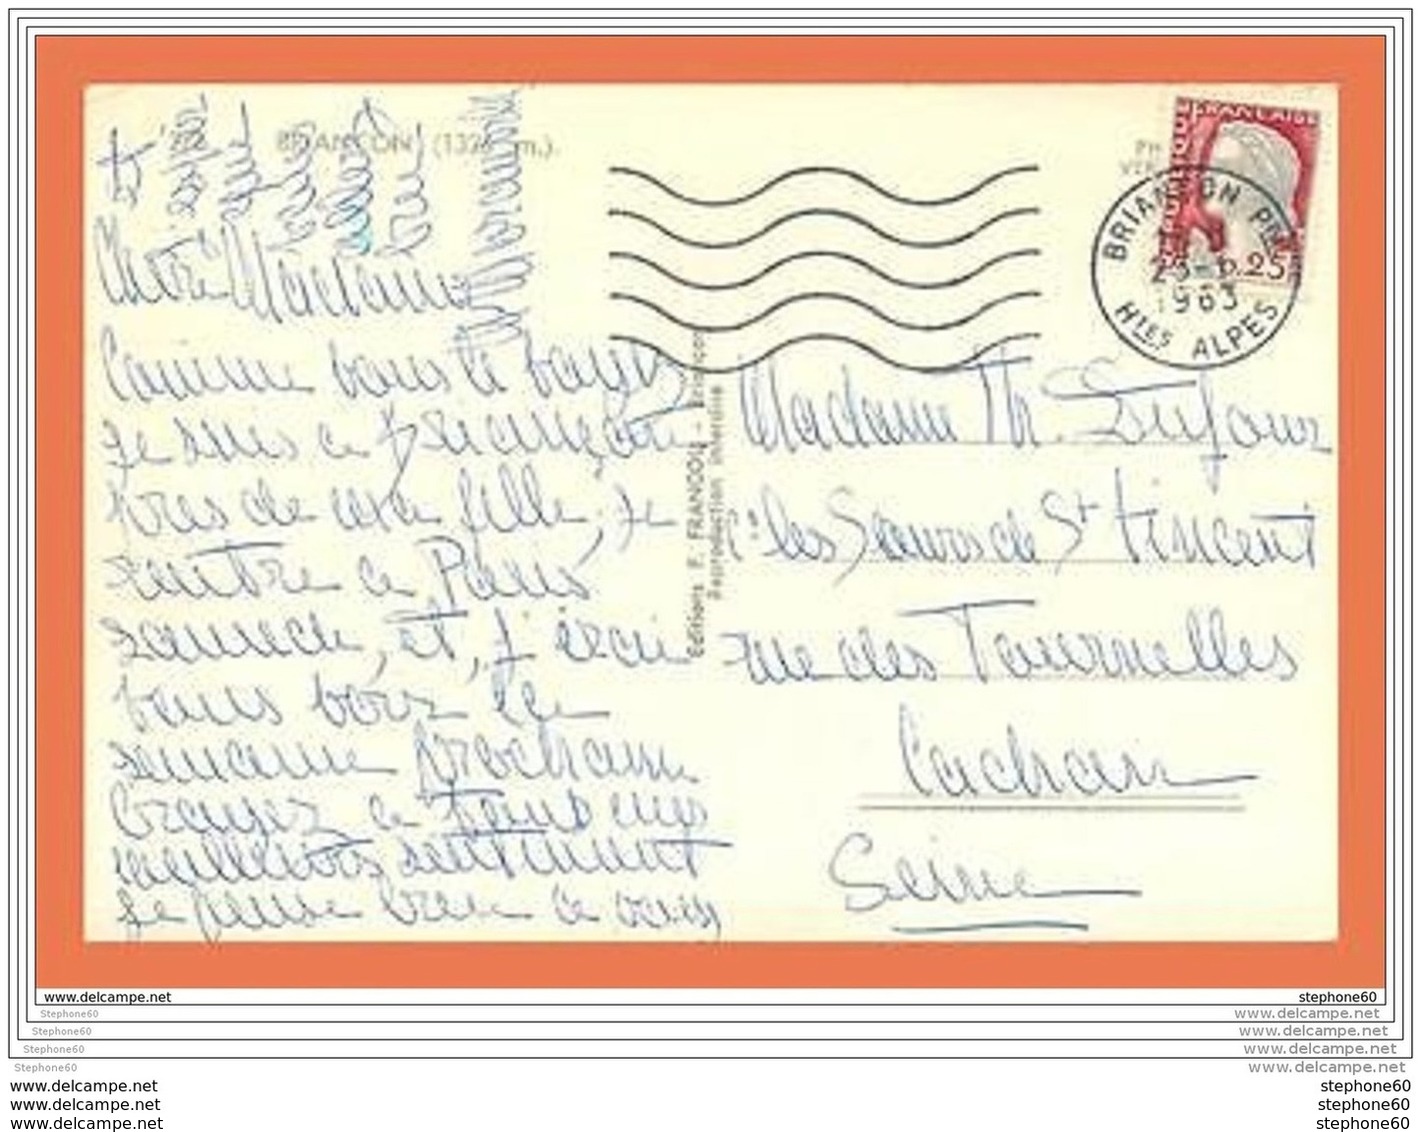 BRIANÇON (1326 m.).
Chère Madame
Comme vous le voyez
je suis a Briançon
pres de ma fille, je
rentre a Paris
samedi, et, j'irai
vous voir la
semaine prochaine
Croyez a tous mes
meilleurs sentiment
je pense bien a vous
Editions F. FRANCOU - Briançon
Reproduction interdite
REPUBLIQUE FRANÇAISE
0.25
BRIANÇON PPAL
1963
Htes ALPES
Madame Th. Dufour
les Sœurs de St Vincent
rue des Tournelles
Cachan
Seine
www.delcampe.net
stephone60
Stephone60
www.delcampe.net
Stephone60
www.delcampe.net
Stephone60
www.delcampe.net
Stephone60
www.delcampe.net
www.delcampe.net
stephone60
www.delcampe.net
stephone60
www.delcampe.net
stephone60